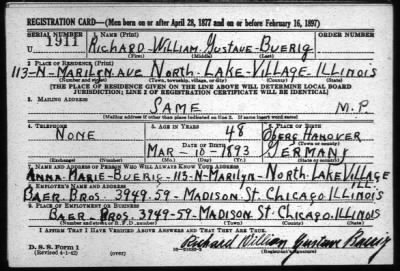 REGISTRATION CARD—(Men born on or after April 28, 1877 and on or before February 16, 1897)
SERIAL NUMBER 1. NAME (Print) ORDER NUMBER
U 1911 RICHARD-WILLIAM GUSTAVE-BUERIG
(First) (Middle) (Last)
2. PLACE OF RESIDENCE (Print)
113-N-MARILYN.AVE NORTH-LAKE-VILLAGE ILLINOIS
(Number and street) (Town, township, village, or city) (County) (State)
[THE PLACE OF RESIDENCE GIVEN ON THE LINE ABOVE WILL DETERMINE LOCAL BOARD
JURISDICTION; LINE 2 OF REGISTRATION CERTIFICATE WILL BE IDENTICAL]
3. MAILING ADDRESS
SAME M.P.
[Mailing address if other than place indicated on line 2. If same insert word same]
4. TELEPHONE 5. AGE IN YEARS 6. PLACE OF BIRTH
NONE 48 OBERG HANOVER
DATE OF BIRTH (Town or county)
MAR-10-1893 GERMANY
(Exchange) (Number) (Mo.) (Day) (Yr.) (State or country)
7. NAME AND ADDRESS OF PERSON WHO WILL ALWAYS KNOW YOUR ADDRESS
ANNA-MARIE-BUERIG-113-N-MARILYN-NORTH.LAKE VILLAGE
ILL.
8. EMPLOYER'S NAME AND ADDRESS
BAER.BROS. 3949-59-MADISON.ST. CHICAGO.ILLINOIS
9. PLACE OF EMPLOYMENT OR BUSINESS
BAER.BROS. 3949-59-MADISON ST. CHICAGO.ILLINOIS
(Number and street or R. F. D. number) (Town) (County) (State)
I AFFIRM THAT I HAVE VERIFIED ABOVE ANSWERS AND THAT THEY ARE TRUE.
D. S. S. Form 1
(Revised 4-1-42) (over)
Richard William Gustave Buerig
(Registrant's signature)